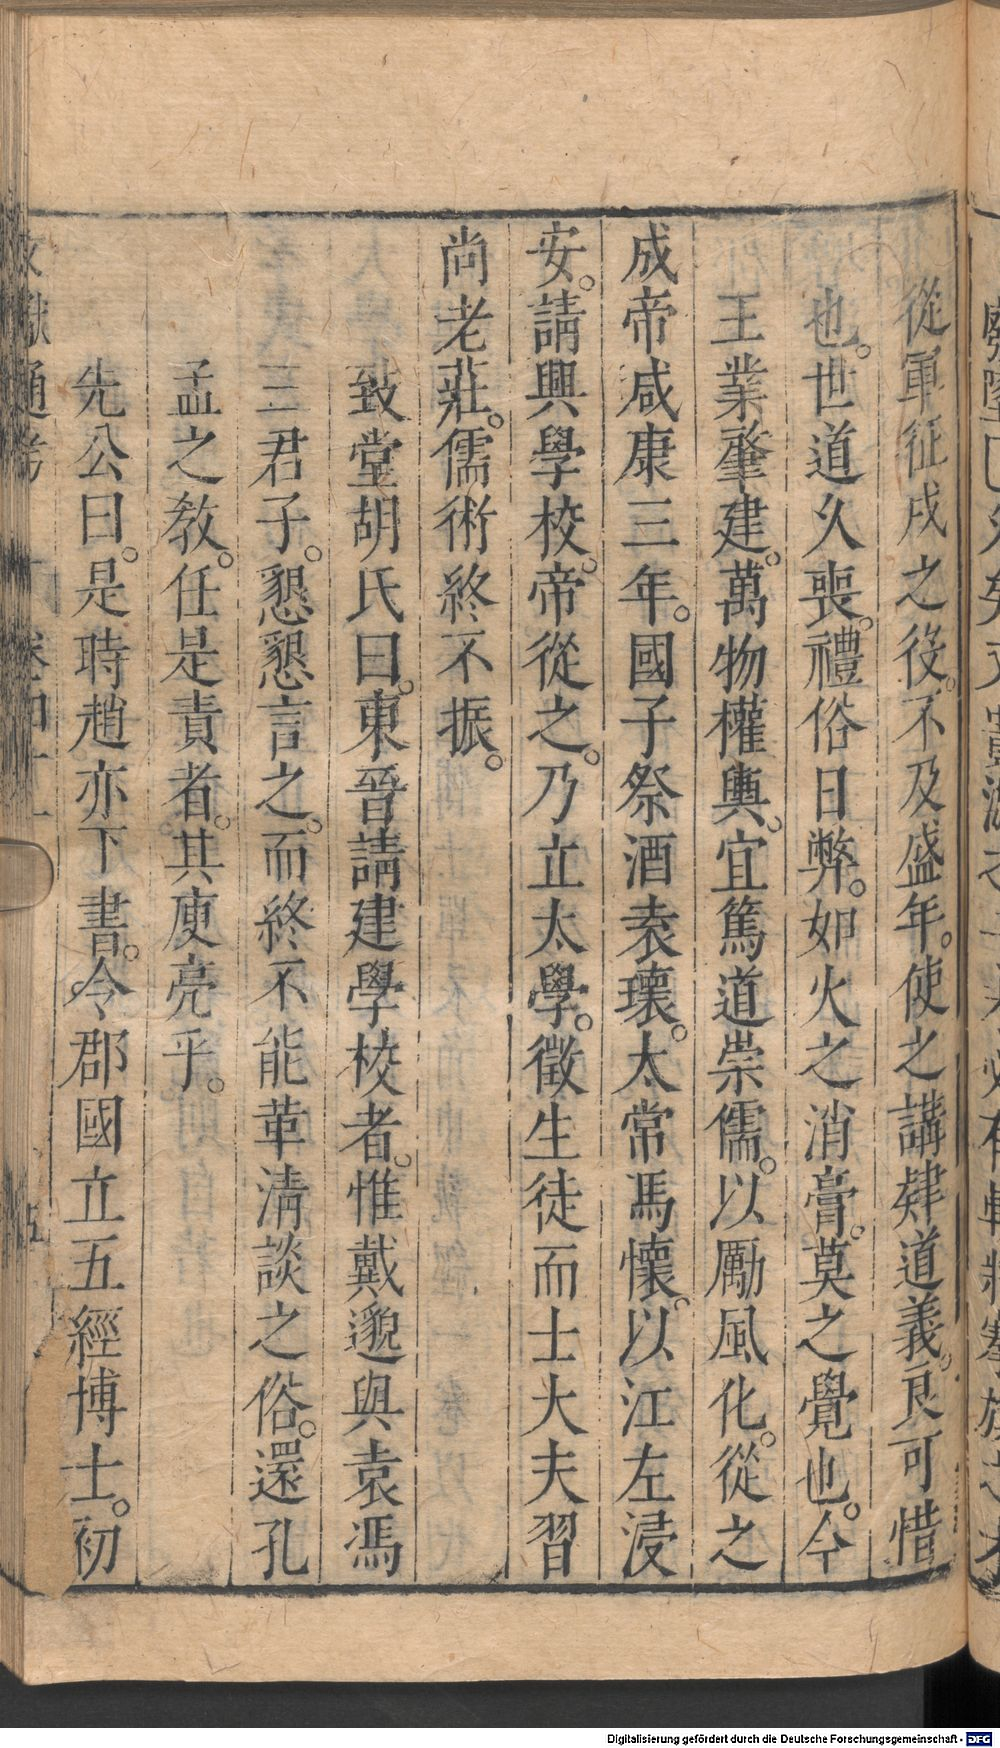 從軍征戍之役。不及盛年。使之講肄道義。良可惜
也。世道久喪。禮俗日弊。如火之消膏。莫之覺也。今
王業肇建。萬物權輿。宜篤道崇儒。以勵風化。從之
成帝咸康三年。國子祭酒袁瓌。太常馮懷。以江左浸
安。請興學校。帝從之。乃立太學。徵生徒而士大夫習
尚老莊。儒術終不振。
致堂胡氏曰。東晉請建學校者。惟戴邈與袁馮
三君子。懇懇言之。而終不能革清談之俗。還孔
孟之教。任是責者。其庾亮乎。
先公曰。是時趙亦下書。令郡國立五經博士。初
文獻通考 卷四十一
Digitalisierung gefördert durch die Deutsche Forschungsgemeinschaft - DFG